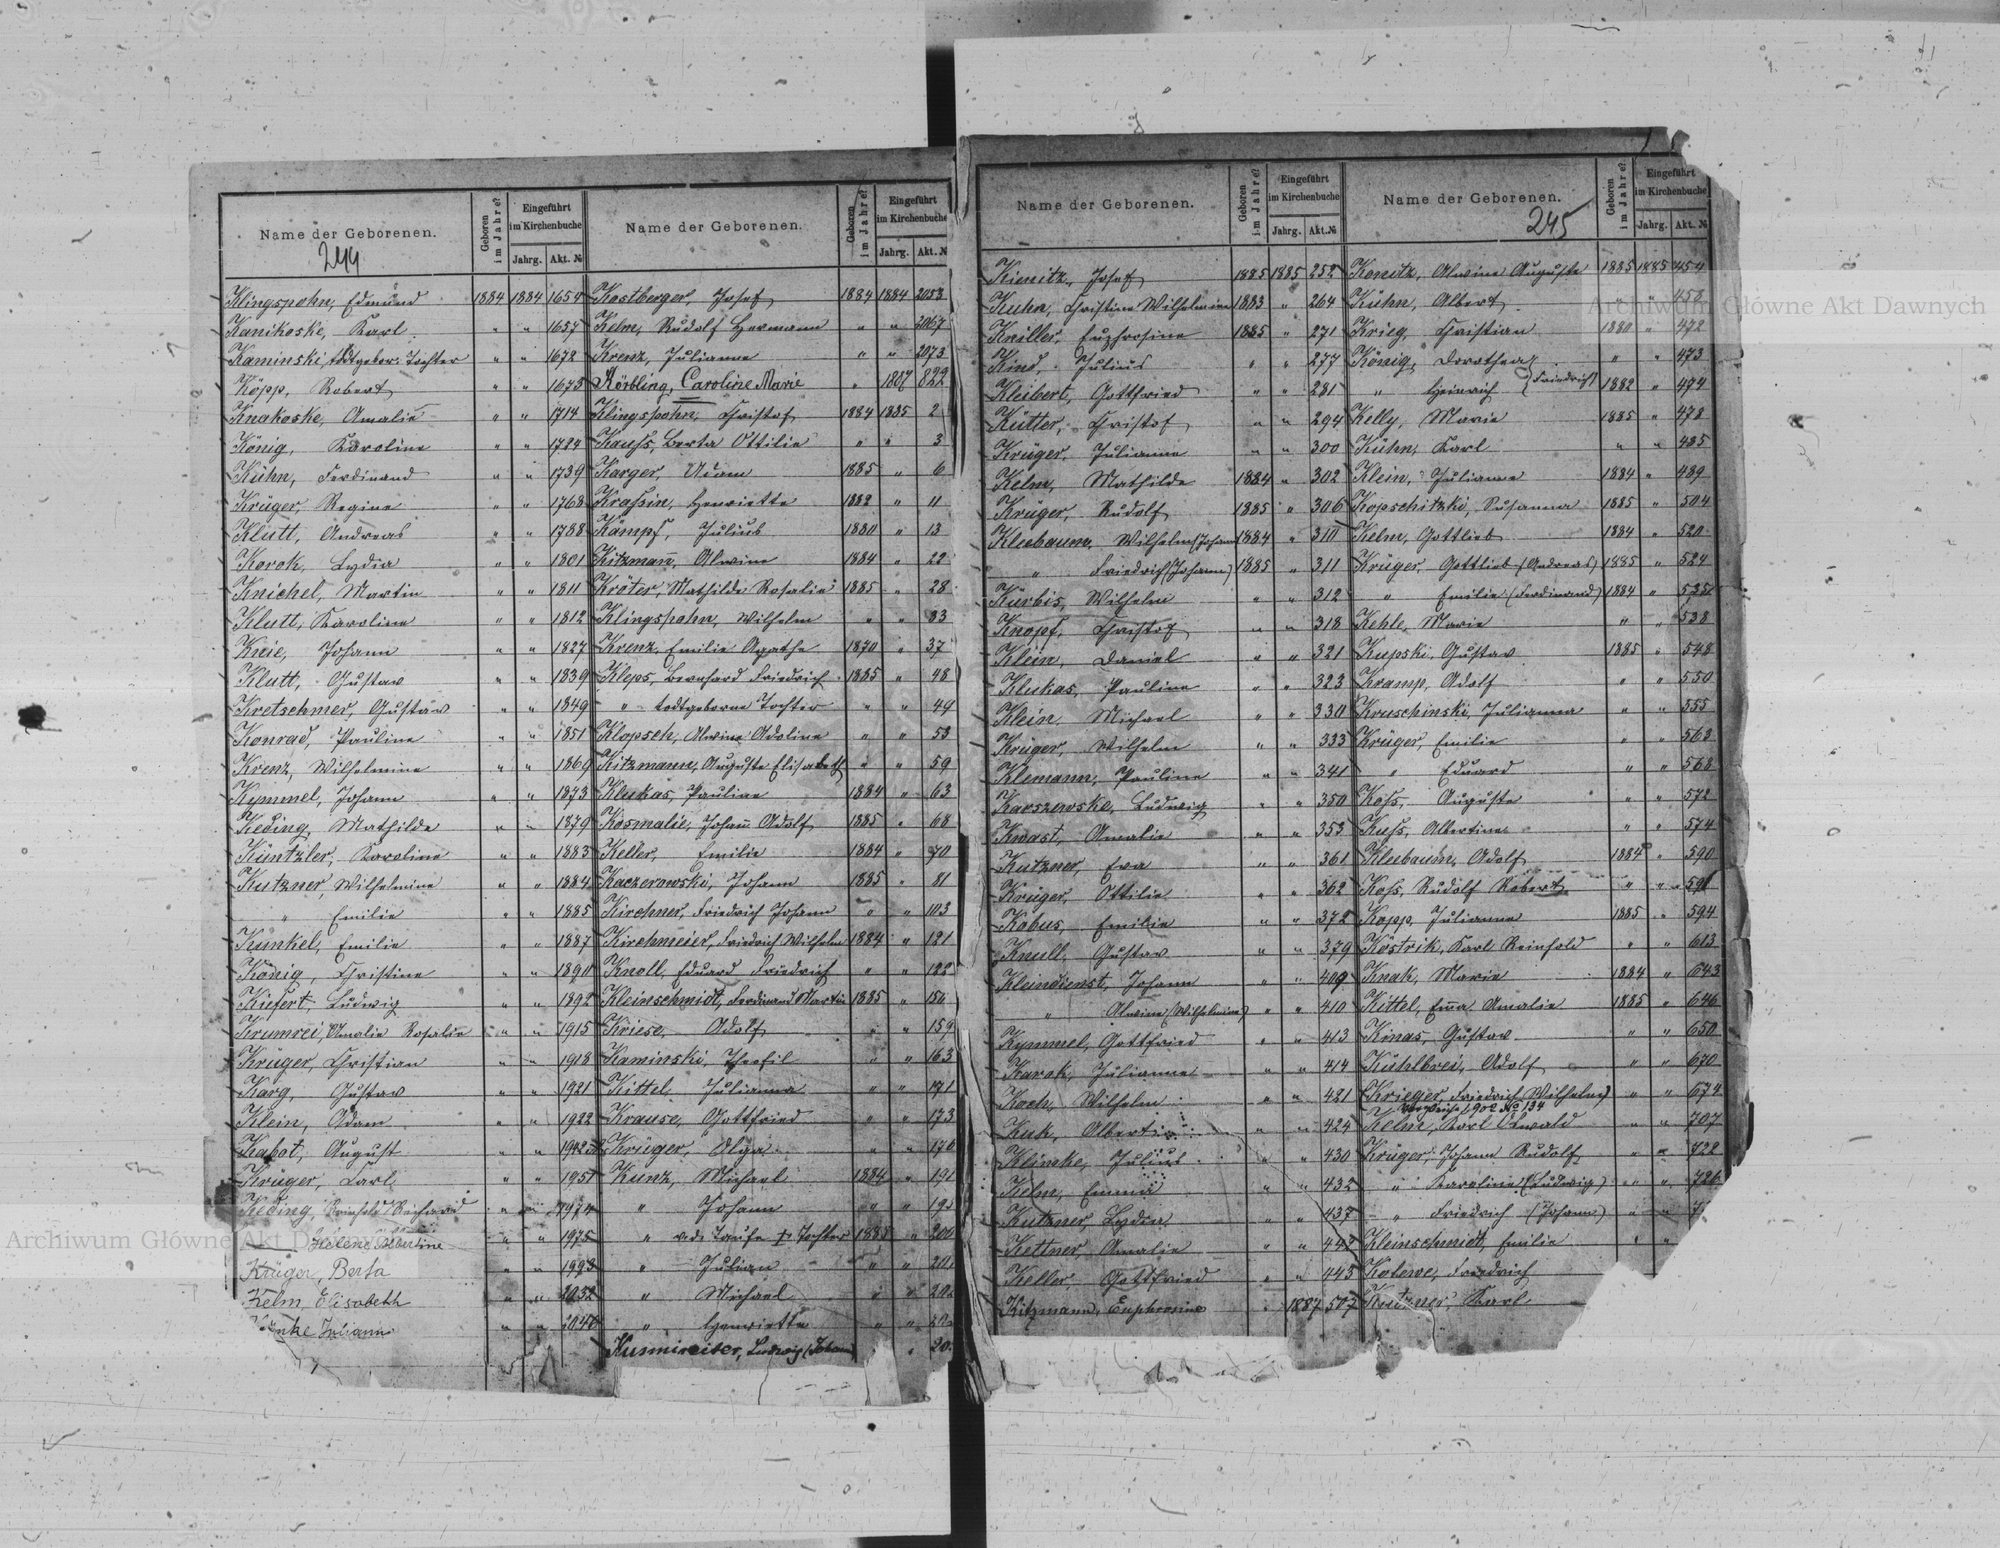 Name der Geborenen. Geboren im Jahre? Eingeführt im Kirchenbuche Jahrg. Akt. №
244
Klingspohn, Edmund 1884 1884 1654
Kanikoske, Karl " " 1657
Kaminski, todtgebor. Tochter " " 1672
Köpp, Robert " " 1673
Knakoske, Amalie " " 1714
König, Karoline " " 1724
Kühn, Ferdinand " " 1739
Krüger, Regine " " 1768
Klutt, Andreas " " 1788
Korok, Lydia " " 1801
Knichel, Martin " " 1811
Klutt, Karoline " " 1812
Knie, Johann " " 1827
Klutt, Gustav " " 1839
Kretschmer, Gustav " " 1849
Konrad, Pauline " " 1851
Krenz, Wilhelmine " " 1869
Kymmel, Johann " " 1873
Keding, Mathilde " " 1879
Küntzler, Karoline " " 1883
Kutzner, Wilhelmine " " 1884
" Emilie " " 1885
Kunkel, Emilie " " 1887
König, Christine " " 1890
Kiefert, Ludwig " " 1892
Krumrei, Amalie Rosalie " " 1915
Krüger, Christian " " 1918
Karg, Gustav " " 1921
Klein, Adam " " 1922
Kabot, August " " 1942
Krüger, Carl " " 1951
Keding, Reinhold Reichard " " 1974
Helene Albertine " " 1975
Krüger, Berta " " 1993
Kelm, Elisabeth " " 2032
Juliann " " 2040
Name der Geborenen. Geboren im Jahre? Eingeführt im Kirchenbuche Jahrg. Akt. №
Kostberger, Josef 1884 1884 2053
Kelm, Rudolf Hermann " " 2067
Krenz, Julianne " " 2073
Körbling, Caroline Marie " 1887 822
Klingspohn, Christof 1884 1885 2
Kauss, Berta Ottilie " " 3
Karger, Adam 1885 " 6
Krassin, Henriette 1882 " 11
Kämpf, Julius 1880 " 13
Kitzmann, Alwine 1884 " 22
Kröter, Mathilde Rosalie 1885 " 28
Klingspohn, Wilhelm " " 33
Krenz, Emilie Agathe 1870 " 37
Kleps, Bernhard Friedrich 1885 " 48
" todtgeborne Tochter " " 49
Klopsch, Alwine Adoline " " 53
Kitzmann, Auguste Elisabeth " " 59
Klukas, Pauline 1884 " 63
Kosmalie, Johann Adolf 1885 " 68
Keller, Emilie 1884 " 70
Kaczerowski, Johann 1885 " 81
Kirchner, Friedrich Johann " " 103
Kirchmeier, Friedrich Wilhelm 1884 " 121
Knoll, Eduard Friedrich " " 122
Kleinschmidt, Ferdinand Martin 1885 " 156
Kriese, Adolf " " 159
Kaminski, Theofil " " 163
Kittel, Julianna " " 171
Krause, Gottfried " " 173
Krüger, Olga " " 176
Kunz, Michael 1884 " 191
" Johann " " 19
" v. d. Taufe † Tochter 1885 " 200
" Julian " " 20
" Michael " " 202
" Henriette " " 20
Kusmireiter, Ludwig (Johann " 20
Name der Geborenen. Geboren im Jahre? Eingeführt im Kirchenbuche Jahrg. Akt. №
Kienitz, Josef 1885 1885 252
Kuhn, Christine Wilhelmine 1883 " 264
Kniller, Euphrosine 1885 " 271
Kind, Julius " " 277
Kleibert, Gottfried " " 281
Kütter, Christof " " 294
Krüger, Julianne " " 300
Kelm, Mathilde 1884 " 302
Krüger, Rudolf 1885 " 306
Kleebaum, Wilhelm (Johann) 1884 " 310
" Friedrich (Johann) 1885 " 311
Kürbis, Wilhelm " " 312
Knopf, Christof " " 318
Klein, Daniel " " 321
Klukas, Pauline " " 323
Klein, Michael " " 330
Krüger, Wilhelm " " 333
Klemann, Pauline " " 341
Karszewske, Ludwig " " 350
Knast, Amalie " " 353
Kutzner, Eva " " 361
Krüger, Ottilie " " 362
Kobus, Emilie " " 372
Knull, Gustav " " 379
Kleindienst, Johann " " 409
" Alwine (Wilhelmine) " " 410
Kymmel, Gottfried " " 413
Karok, Julianne " " 414
Koch, Wilhelm " " 421
Kuk, Albert " " 424
Klimke, Julius " " 430
Kelm, Emma " " 432
Kutzner, Lydia " " 437
Kettner, Amalie " " 442
Keller, Gottfried " " 443
Kitzmann, Euphrosine " 1887 507
Name der Geborenen. Geboren im Jahre? Eingeführt im Kirchenbuche Jahrg. Akt. №
245
Konitz, Alwine Auguste 1885 1885 454
Kühn, Albert " " 458
Krieg, Christian 1880 " 472
König, Dorothea " " 473
" Heinrich (Friedrich) 1882 " 474
Kelly, Marie 1885 " 478
Kühn, Karl " " 485
Klein, Julianne 1884 " 489
Kopschitzki, Susanna 1885 " 504
Kelm, Gottlieb 1884 " 520
Krüger, Gottlieb (Andreas) 1885 " 524
" Emilie (Ferdinand) 1884 " 525
Kehle, Marie " " 538
Kupski, Gustav 1885 " 548
Kramp, Adolf " " 550
Kruschinski, Julianna " " 555
Krüger, Emilie " " 563
" Eduard " " 568
Koss, Auguste " " 572
Kuss, Albertine " " 574
Kleebaum, Adolf 1884 " 590
Koss, Rudolf Robert " " 591
Kopp, Julianne 1885 " 594
Köstrik, Karl Reinhold " " 613
Knak, Marie 1884 " 643
Kittel, Emma Amalie 1885 " 646
Kinas, Gustav " " 650
Kühlbrei, Adolf " " 670
(Krieger, Friedrich Wilhelm) " " 674
1902 № 134
Kelm, Karl Oswald " " 707
Krüger, Johann Rudolf " " 722
" Karoline (Ludwig) " " 726
" Friedrich (Johann) " " 7
Kleinschmidt, Emilie " "
Kolewe, Friedrich
Kutzner, Karl
Archiwum Główne Akt Dawnych
Archiwum Główne Akt Dawnych